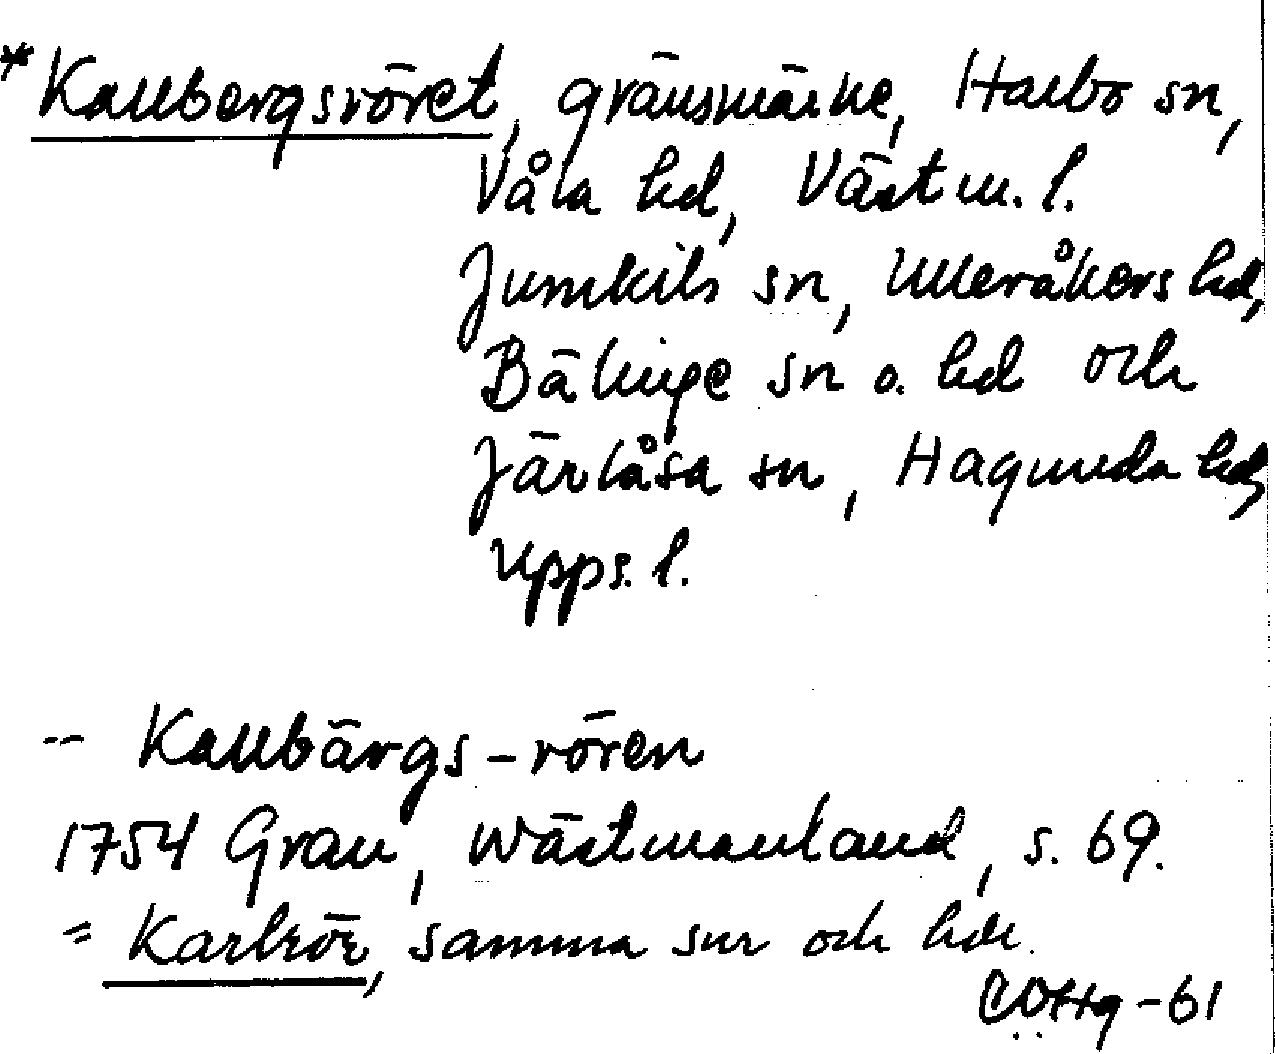 *Kallbergsröret, gränsmärke, Harbo sn,
Våla hd, Västm. l.
Jumkils sn, Ulleråkers hd,
Bälinge sn o. hd och
Järlåsa sn, Hagunda hd,
Upps. l.
-- Kallbärgs-rören
1754 Grau, Wästmanland, s. 69.
= Karlrör, samma snr och hdr.
-61